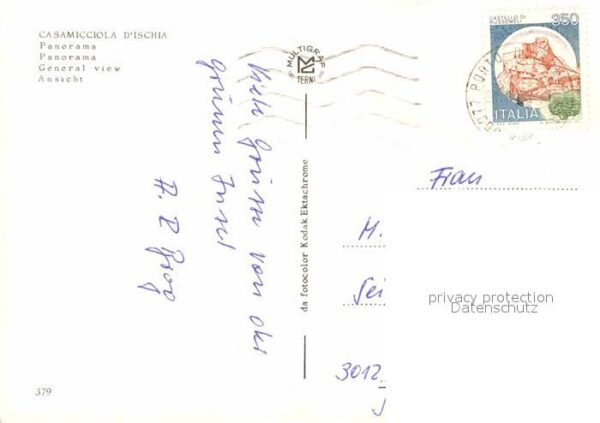 CASAMICCIOLA D'ISCHIA
Panorama
Panorama
General view
Ansicht
MULTIGRAF
TERNI
CASTELLO DI
MUSSOMELI
350
ITALIA
PORTO
Viele Grüsse von der
grünen Insel
da fotocolor Kodak Ektachrome
Frau
H.
Sei
3012
privacy protection
Datenschutz
379